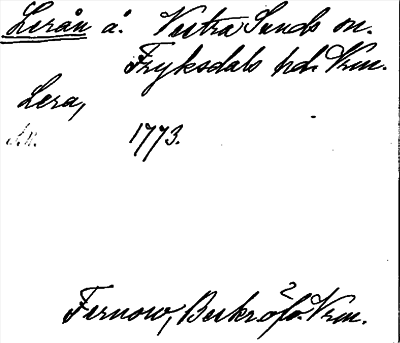 Lerån å. Vestra Sunds sn.
Fryksdals hd. Vrm.
Lera,
1773.
Fernow, Beskr. öfv. Vrm.